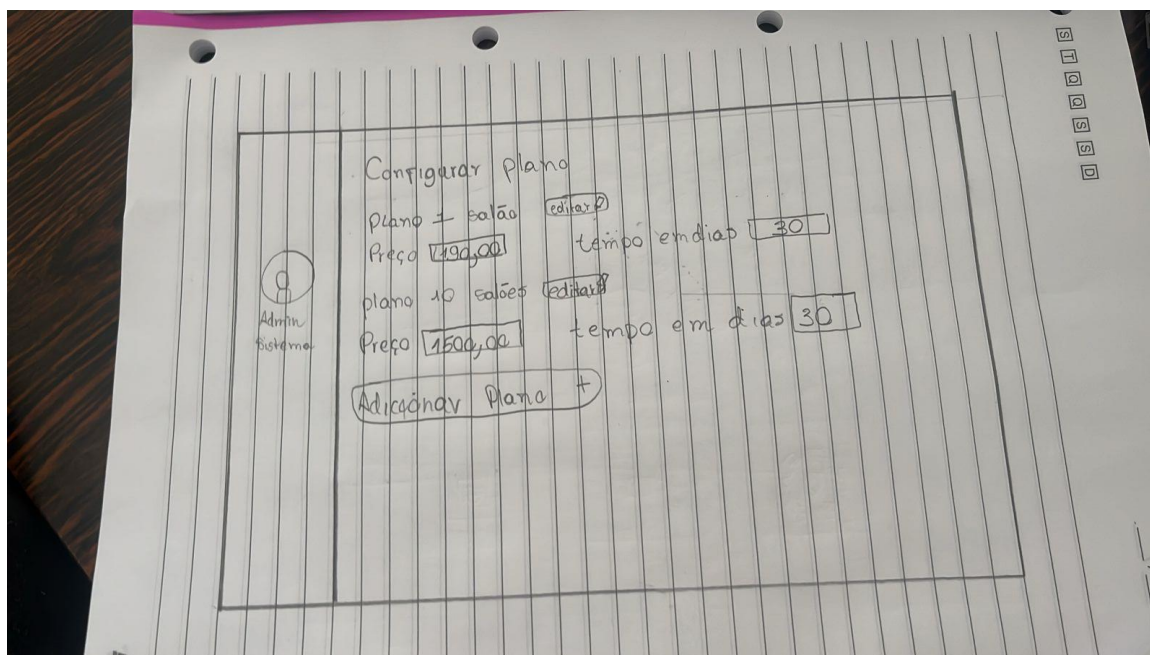 S T Q Q S S D
Configurar plano
plano 1 salão editar
Preço 190,00 tempo em dias 30
plano 10 salões editar
Preço 1500,00 tempo em dias 30
Adicionar Plano +
Admin
Sistema